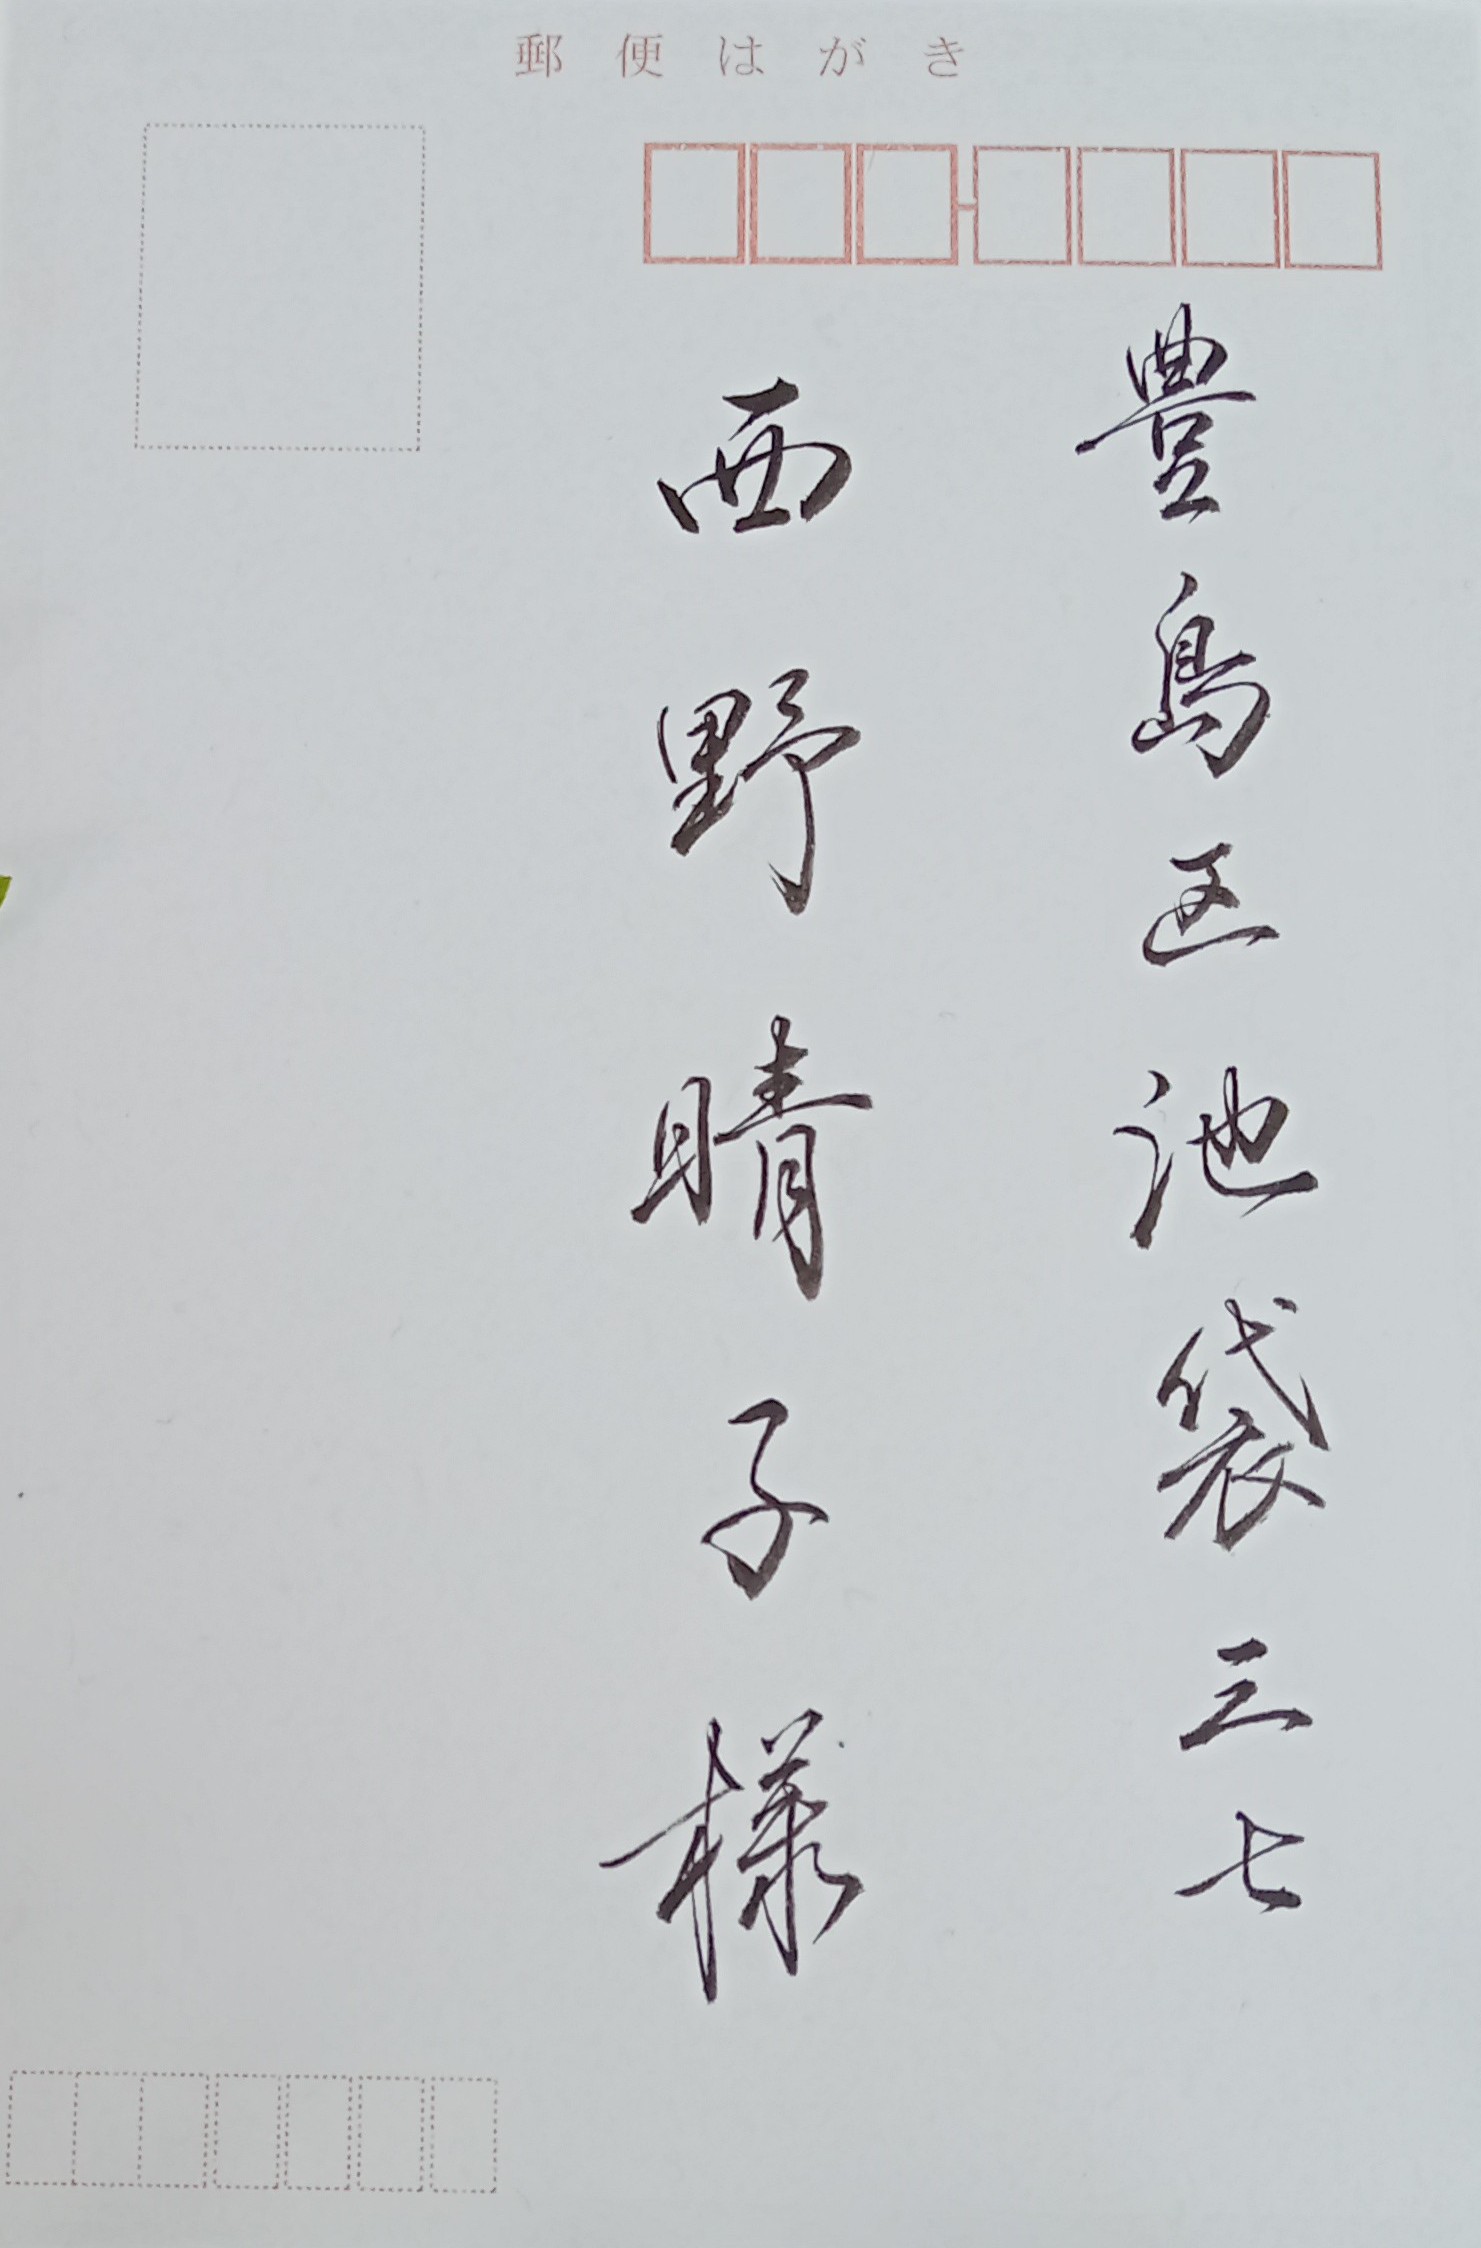 郵便はがき
豊島区池袋三七
西野晴子様